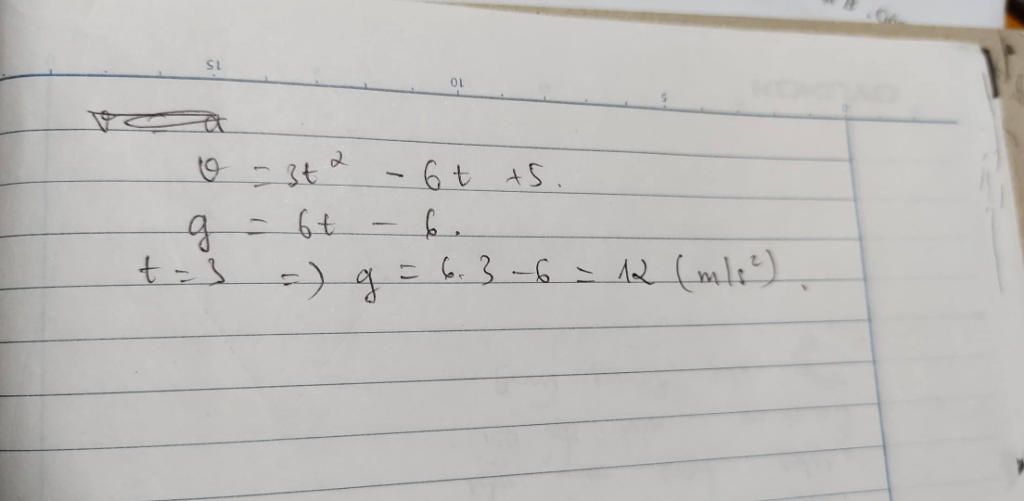 v = 3t² - 6t + 5.
g = 6t - 6.
t = 3 => g = 6.3 - 6 = 12 (m/s²).